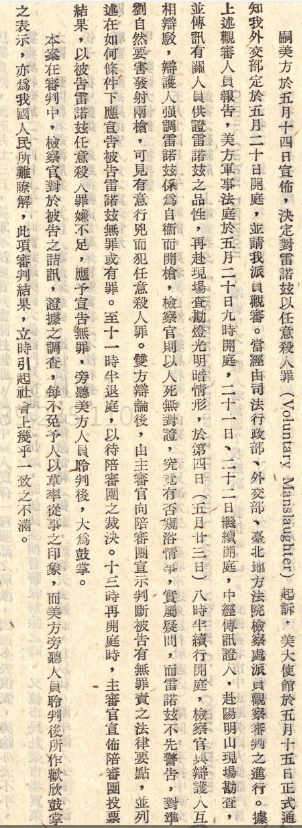 嗣美方於五月十四日宣佈，決定對雷諾玆以任意殺人罪 (Voluntary Manslaughter) 起訴，美大使館於五月十五日正式通
知我外交部定於五月二十日開庭，並請我派員觀審。當經由司法行政部、外交部、臺北地方法院檢察處派員觀察審判之進行。據
上述觀審人員報告，美方軍事法庭於五月二十日九時開庭，二十一日、二十二日繼續開庭，中經傳訊證人，赴陽明山現場勘查，
並傳訊有關人員供證雷諾玆之品性，再赴現場查勘燈光明暗情形，於第四日（五月廿三日）八時半續行開庭，檢察官與辯護人互
相辯駁，辯護人强調雷諾玆係為自衛而開槍，檢察官則以人死無對證，究竟有否窺浴情事，實屬疑問，而雷諾玆不先警告，對準
劉自然要害發射兩槍，可見有意行兇而犯任意殺人罪。雙方辯論後，由主審官向陪審團宣示判斷被告有無罪責之法律要點，並列
述在如何條件下應宣告被告雷諾玆無罪或有罪。至十一時半退庭，以待陪審團之裁決。十三時再開庭時，主審官宣佈陪審團投票
結果，以被告雷諾玆任意殺人罪嫌不足，應予宣告無罪，旁聽美方人員聆判後，大為鼓掌。
本案在審判中，檢察官對於被告之詰訊，證據之調查，每不免予人以草率從事之印象，而美方旁聽人員聆判後所作歡欣鼓掌
之表示，亦為我國人民所難瞭解，此項審判結果，立時引起社會上幾乎一致之不滿。